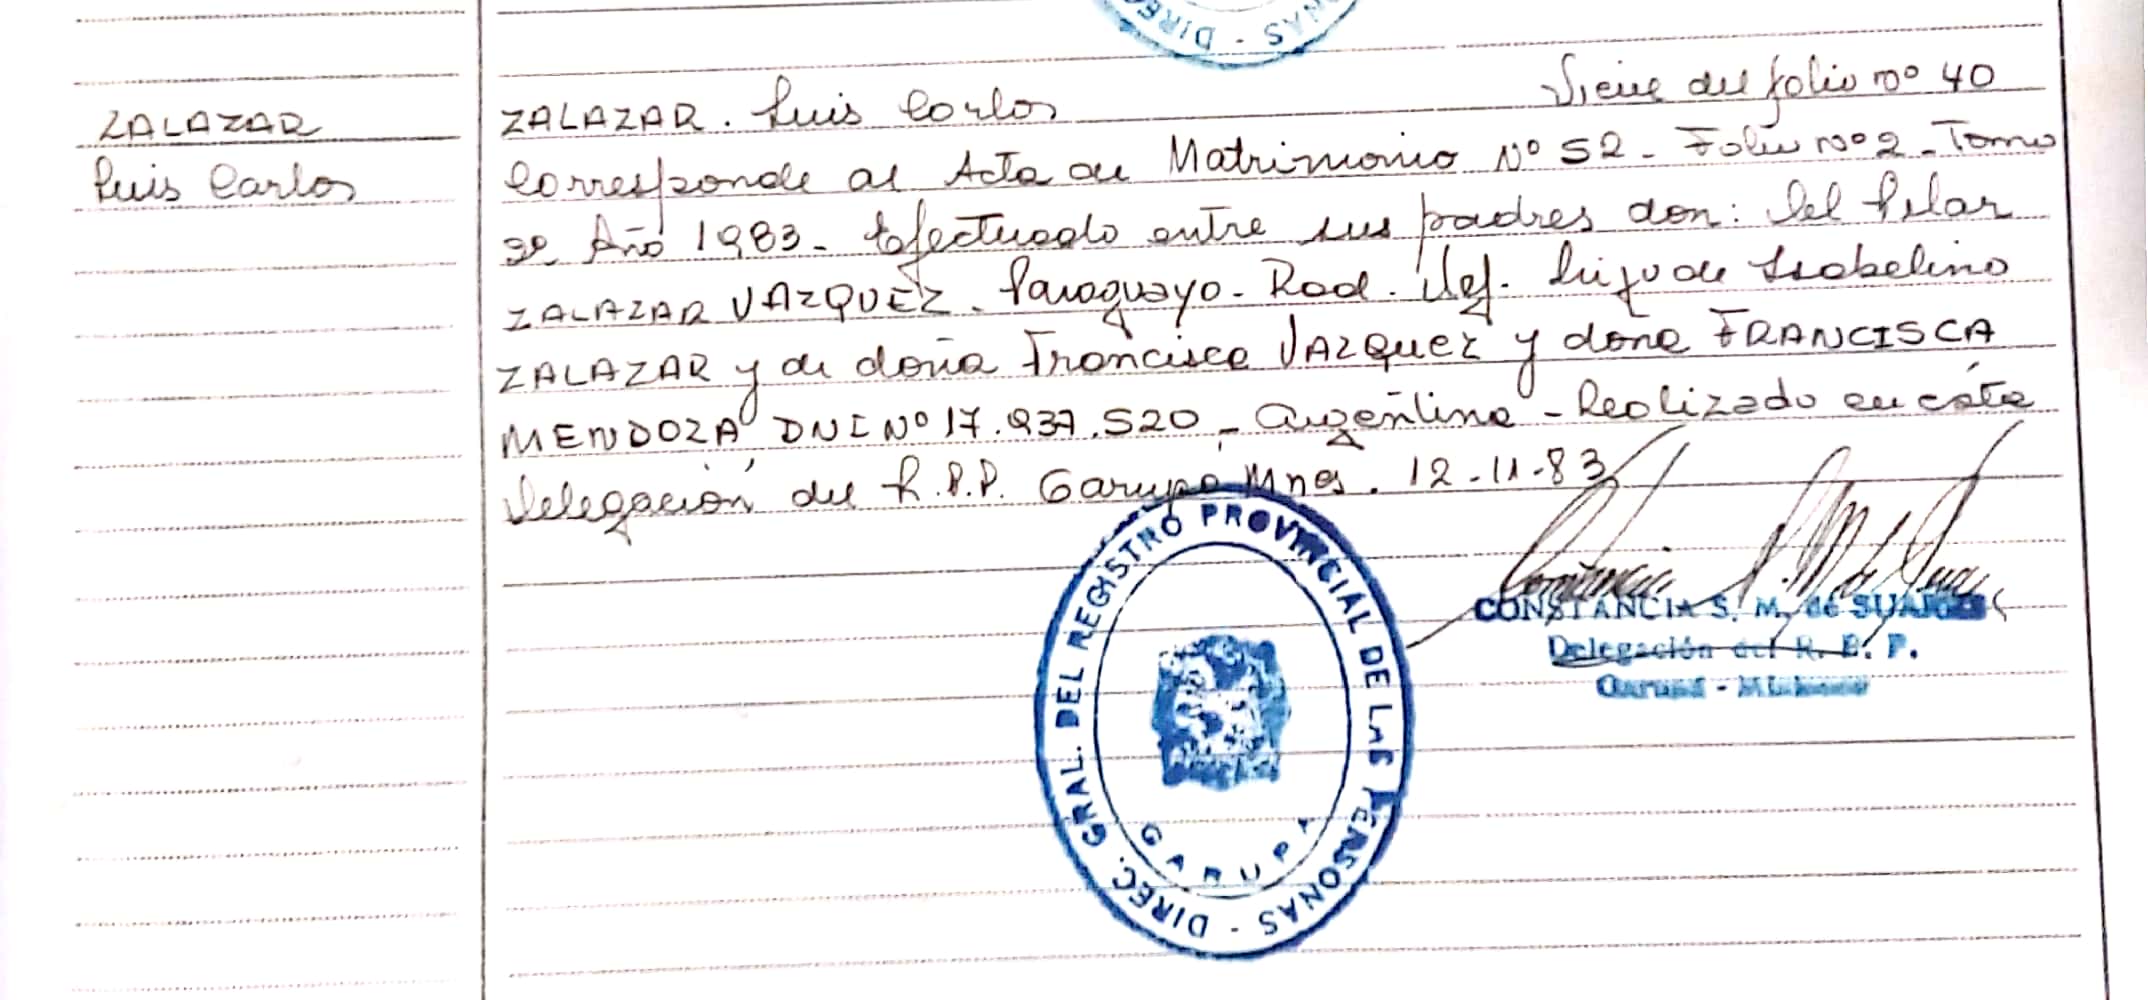 NAS - DIREC
ZALAZAR
Luis Carlos
ZALAZAR. Luis Carlos Viene del folio nº 40
Corresponde al Acta de Matrimonio Nº 52 - Folio nº 2 - Tomo
3º Año 1983 - Efectuado entre sus padres don: Del Pilar
ZALAZAR VAZQUEZ. Paraguayo - Rad. Def. hijo de Isabelino
ZALAZAR y de doña Francisca VAZQUEZ y doña FRANCISCA
MENDOZA DNI Nº 17.937.520 - argentina - Realizado en ésta
Delegación del R.P.P. Garupá Mnes. 12-11-83
DIREC. GRAL. DEL REGISTRO PROVINCIAL DE LAS PERSONAS -
GARUPA
CONSTANCIA S. M. de SUAREZ
Delegación del R. P. P.
Garupá - Misiones